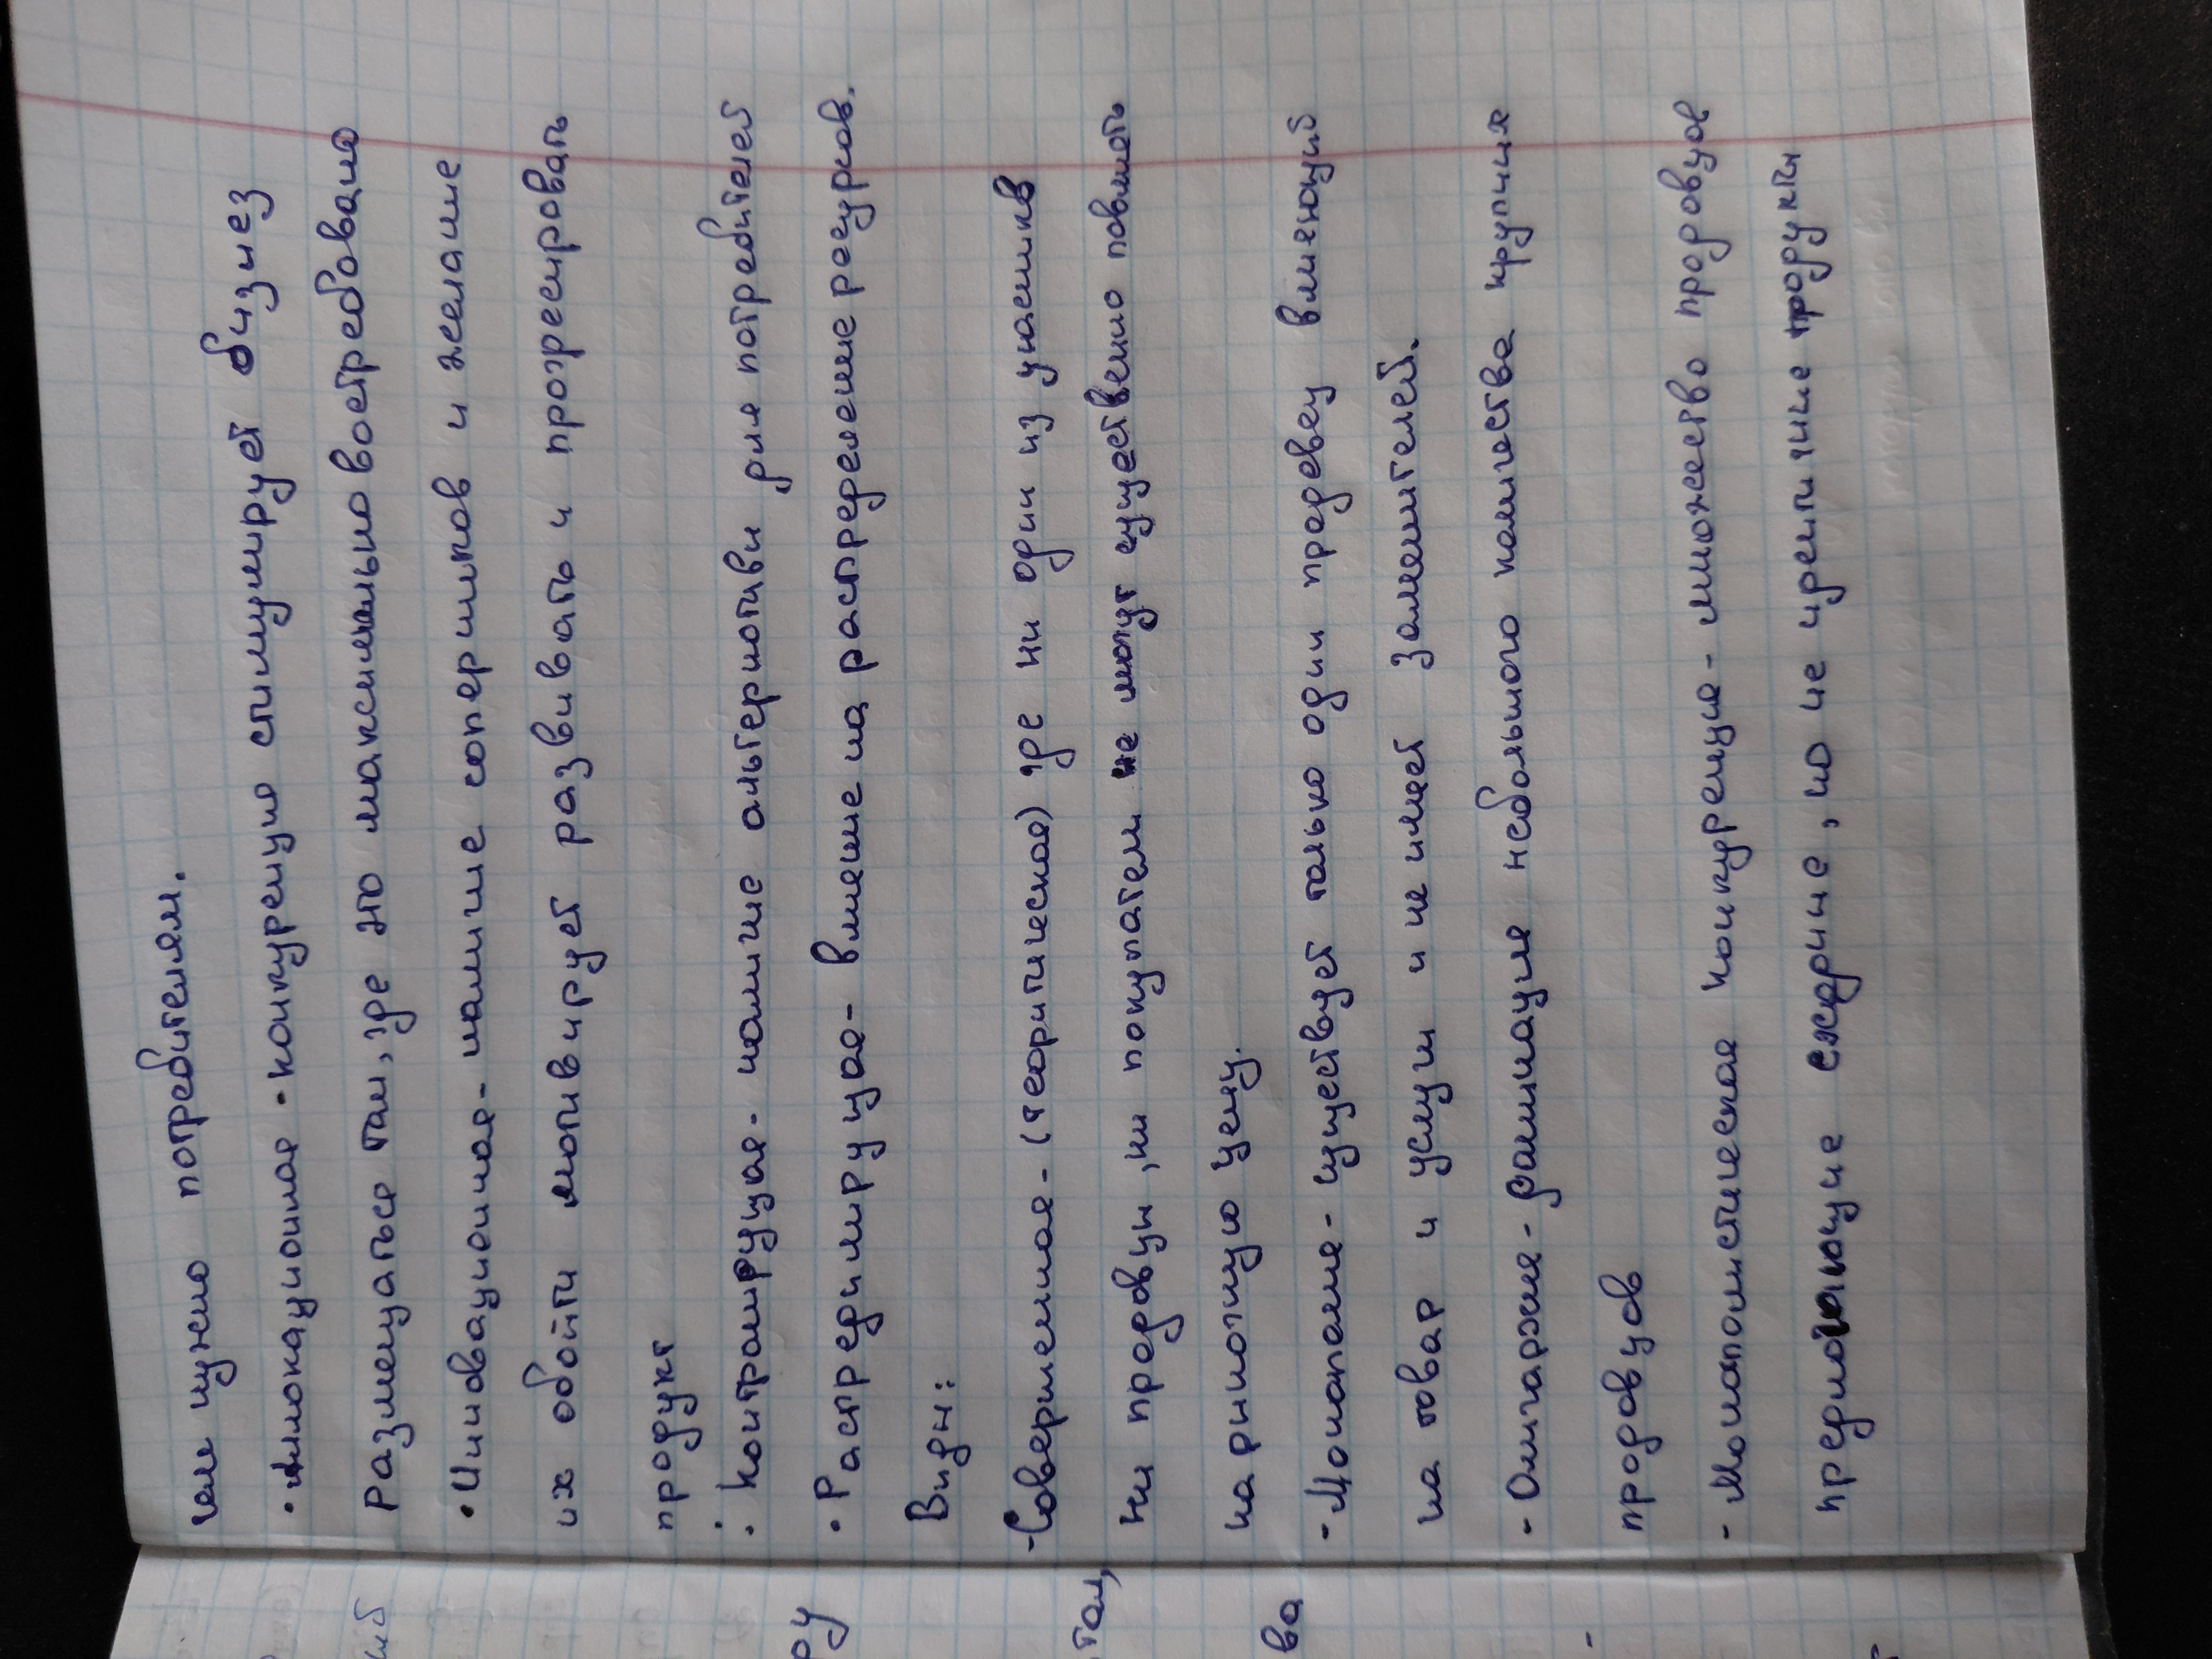 чем нужно потребителям.
· Аллокационная - конкуренцию стимулирует бизнез
Размещаться там, где это максимально востребовано
· Инновационная - наличие соперников и желание
их обойти мотивирует развивать и прогресировать
продукт
· Контролирущая - наличие альтернотивы для потребителей
· Распредилируцая - влияние на распределение ресурсов.
Виды:
- Совершенная - (теоритическая) где ни один из участников
ни продовцы, ни покупатели не могут существенно повлиять
на рыночную цену.
- Монополия - существует только один продовец влияющий
на товар и услуги и не имеет заменителей.
- Олигархия - доминация небольшого количества крупных
продовцов
- Монополистическая конкуренция - множество продовцов
предлогающие сходные, но не идентичные продукты
ру
тал,
ва
-